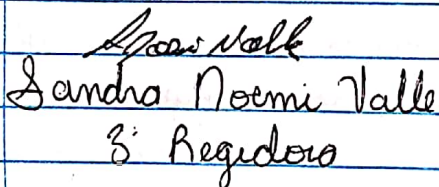 Sandra Noemi Valle
3° Regidora